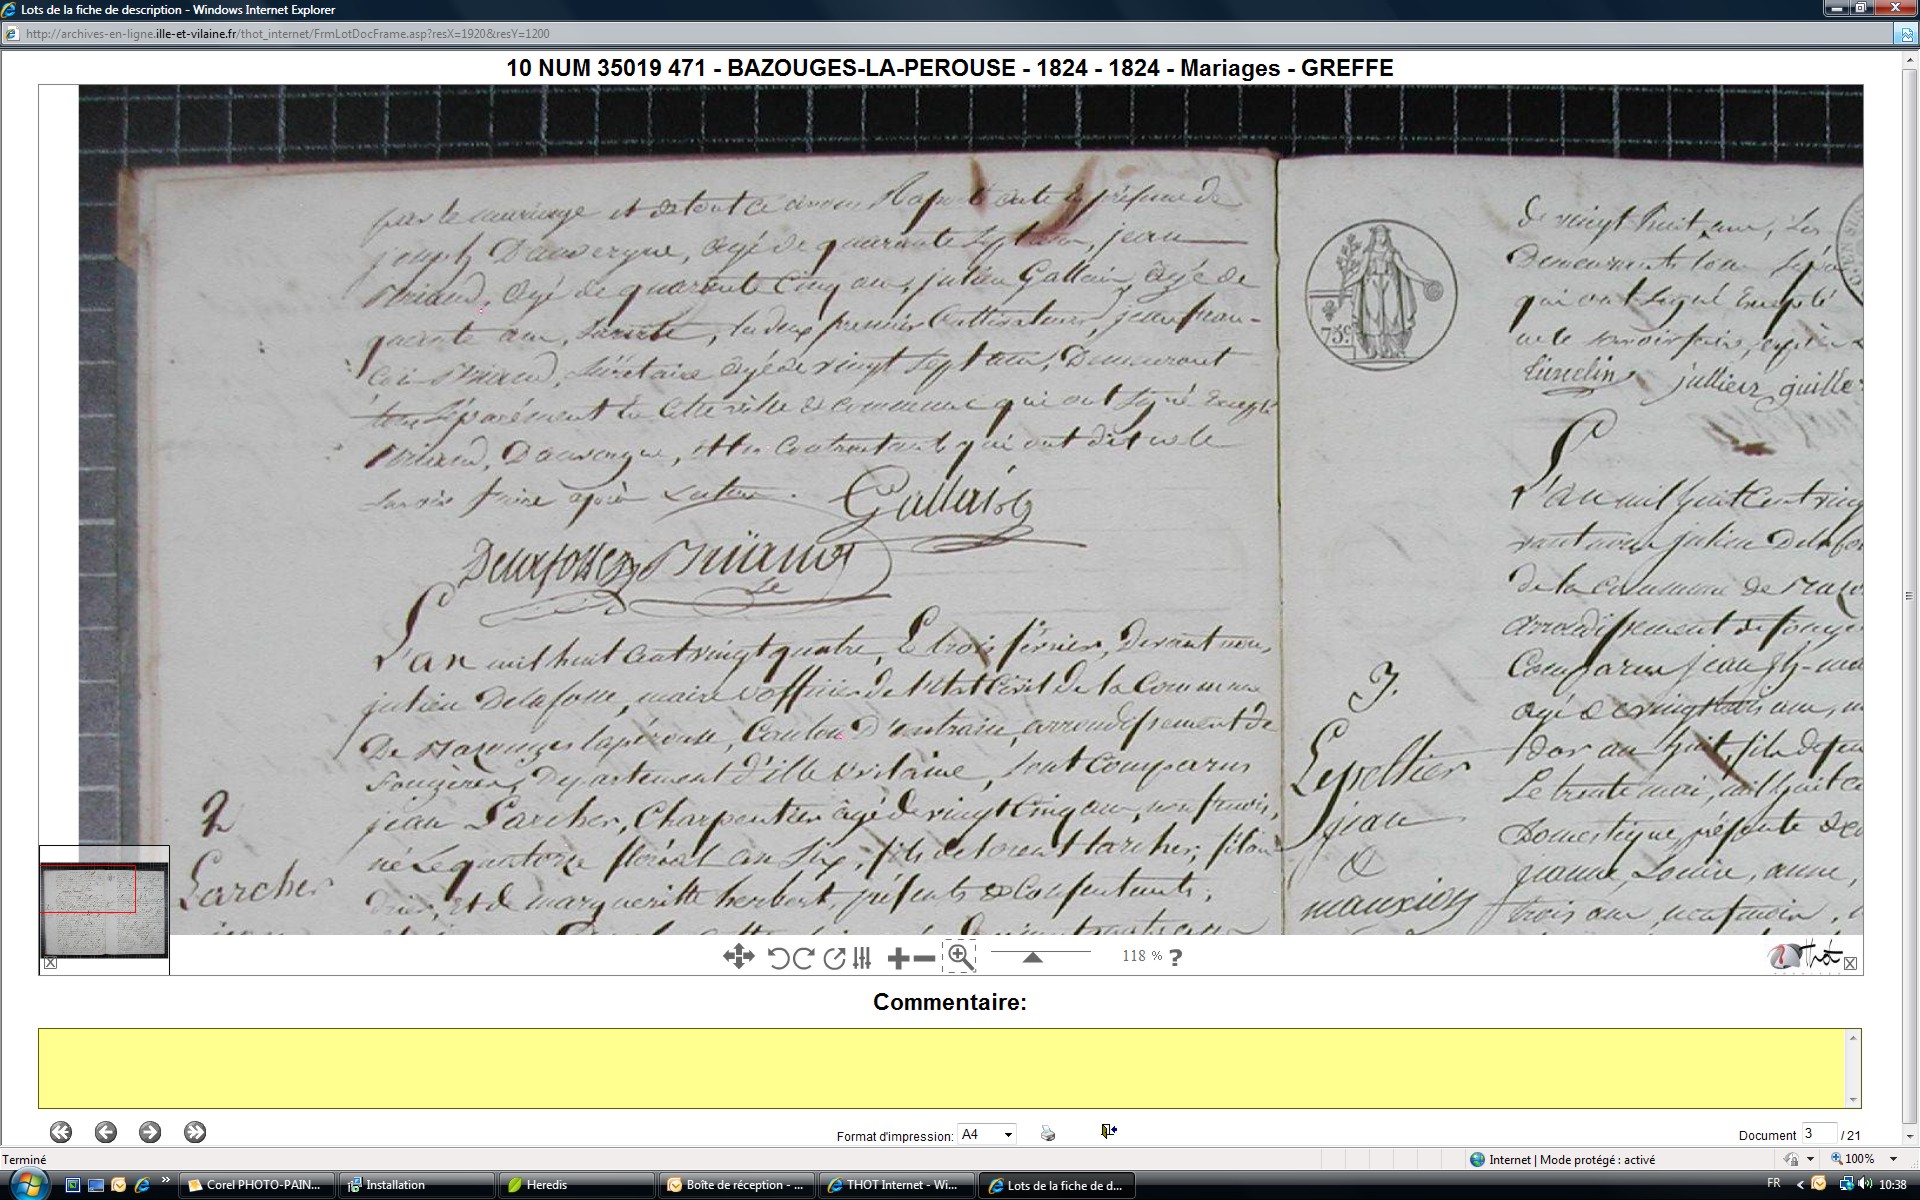 Lots de la fiche de description - Windows Internet Explorer
http://archives-en-ligne.ille-et-vilaine.fr/thot_internet/FrmLotDocFrame.asp?resX=1920&resY=1200
10 NUM 35019 471 - BAZOUGES-LA-PEROUSE - 1824 - 1824 - Mariages - GREFFE
par le mariage et de tout ce avons
joseph Dauvergne, agé de quarante sept ans, jean
Briand, agé de quarante cinq ans, julien Gallais, âgé de
ans, les deux premiers Cultivateurs, jean fran-
Briand, Sécrétaire agé de vingt sept ans, Demeurant
tous séparément en cette ville & commune qui ont signé Excepté
Briand, Dauvergne, et les contractants qui ont dit ne le
savoir faire après Lecture.
Gallais
Delafosse Briand
L'an mil huit cent vingt quatre, le trois février, Devant nous,
julien Delafosse, maire & officier de l'Etat Civil de la Commune
De Bazouges lapérouse, Canton D'antrain, arrondissement de
fougères, Departement d'ille & vilaine, sont Comparus
jean Larcher, Charpentier âgé de vingt cinq ans, neuf mois,
né Le quatorze floréal an six, fils de Larcher, filan-
drier, et de margueritte herbert, présents & Consentants;
2
Larcher
75c.
de vingt huit ans, Les
Demeurants tous sépa
qui ont signé Excepté
ne le savoir faire, après L
jullien guille
L'an mil huit Cent ving
julien Delafos
de la Commune de Bazo
arrondissement de fouge
Comparus jean
agé de vingt trois ans,
an huit, fils de feu
Le trente mai, mil huit ce
Domestique, présente & Co
jeanne, Louise, anne,
trois ans, neuf mois,
3.
Lepeltier
jean
&
mauxion
118 % ?
Thot
Commentaire:
Format d'impression: A4
Document 3 / 21
Terminé
Internet | Mode protégé : activé
100%
Corel PHOTO-PAIN...
Installation
Heredis
Boîte de réception - ...
THOT Internet - Wi...
Lots de la fiche de d...
FR
10:38